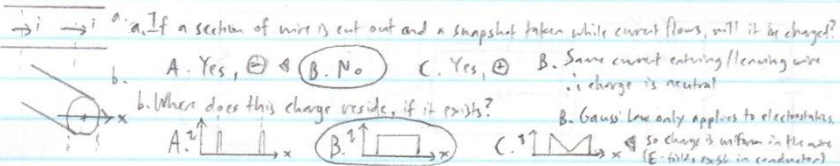 →i →i a. If a section of wire is cut out and a snapshot taken while current flows, will it be charged?
A. Yes, ⊖ B. No C. Yes, ⊕ B. Same current entering/leaving wire
∴ charge is neutral
b.
b. Where does this charge reside, if it exists?
x
B. Gauss' Law only applies to electrostatics.
A. x B. x C. x so charge is uniform in the wire
(E-fields exist in conductor)